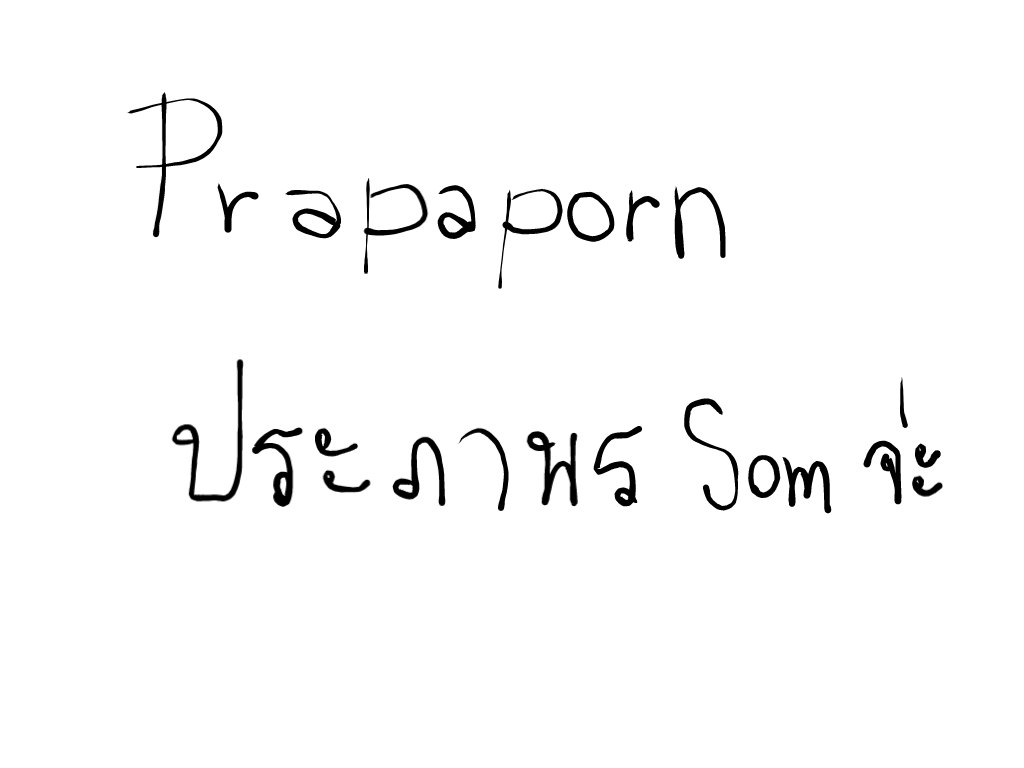 Prapaporn
ประภาพร Som จ่ะ